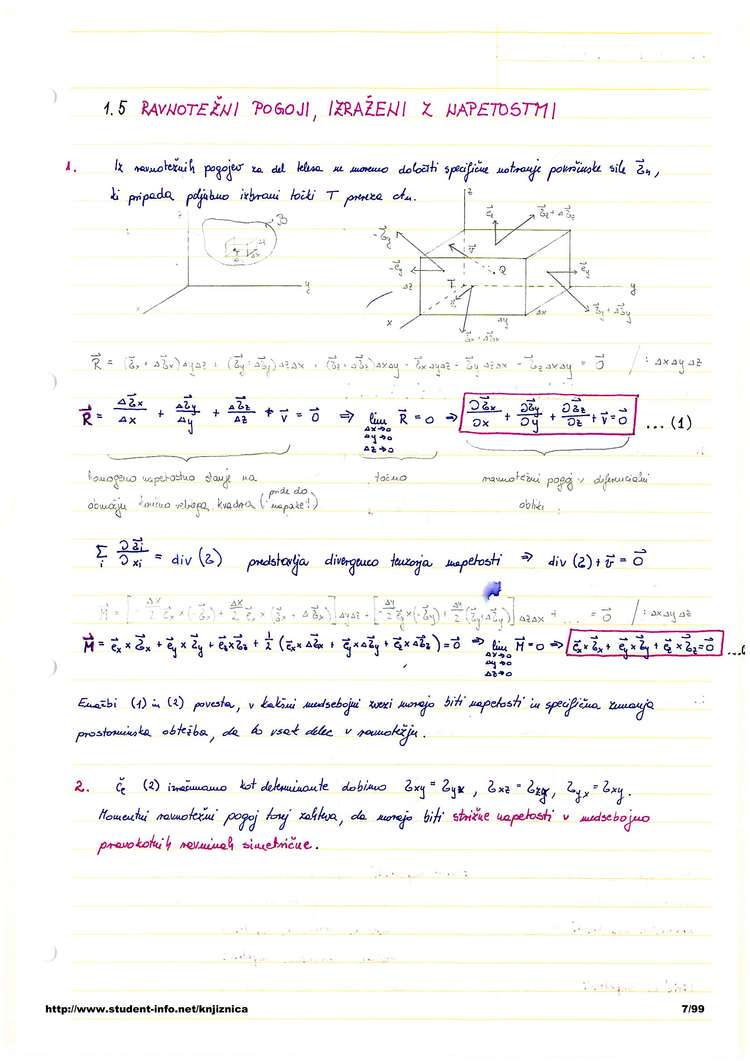 1.5 RAVNOTEŽNI POGOJI, IZRAŽENI Z NAPETOSTMI
1. Iz ravnotežnih pogojev za del telesa ne moremo določiti specifične notranje površinske sile σ⃗n,
ki pripada poljubno izbrani točki T prereza
z z
B e⃗z σ⃗z + Δσ⃗z
-σ⃗y v⃗
-e⃗y Q e⃗y
Δz T y
y Δx σ⃗y + Δσ⃗y
x Δy
x σ⃗x + Δσ⃗x
R⃗ = (σ⃗x + Δσ⃗x)ΔyΔz + (σ⃗y + Δσ⃗y)ΔzΔx + (σ⃗z + Δσ⃗z)ΔxΔy - σ⃗xΔyΔz - σ⃗yΔzΔx - σ⃗zΔxΔy = 0⃗ / : ΔxΔyΔz
R⃗ = Δσ⃗x/Δx + Δσ⃗y/Δy + Δσ⃗z/Δz + v⃗ = 0⃗ ⇒ lim R⃗ = 0 ⇒ ∂σ⃗x/∂x + ∂σ⃗y/∂y + ∂σ⃗z/∂z + v⃗ = 0⃗ ... (1)
Δx→0
Δy→0
Δz→0
homogeno napetostno stanje na točno ravnotežni pogoj v diferencialni
območju končno velikega kvadra (pride do napake!) obliki
Σi ∂σ⃗i/∂xi = div (σ) predstavlja divergenco tenzorja napetosti ⇒ div (σ) + v⃗ = 0⃗
M⃗ = [-Δx/2 e⃗x × (-σ⃗x) + Δx/2 e⃗x × (σ⃗x + Δσ⃗x)] ΔyΔz + [-Δy/2 e⃗y × (-σ⃗y) + Δy/2 (σ⃗y + Δσ⃗y)] ΔzΔx + ... = 0⃗ / : ΔxΔyΔz
M⃗ = e⃗x × σ⃗x + e⃗y × σ⃗y + e⃗z × σ⃗z + 1/2 (e⃗x × Δσ⃗x + e⃗y × Δσ⃗y + e⃗z × Δσ⃗z) = 0⃗ ⇒ lim M⃗ = 0 ⇒ e⃗x × σ⃗x + e⃗y × σ⃗y + e⃗z × σ⃗z = 0⃗
Δx→0
Δy→0
Δz→0
Enačbi (1) in (2) povesta, v kakšni medsebojni zvezi morajo biti napetosti in specifična zunanja
prostorninska obtežba, da bo vsak delec v ravnotežju.
2. Če (2) izračunamo kot determinante dobimo σxy = σyx, σxz = σzx, σyx = σxy.
Momentni ravnotežni pogoj torej zahteva, da morajo biti strižne napetosti v medsebojno
pravokotnih ravninah simetrične.
http://www.student-info.net/knjiznica 7/99